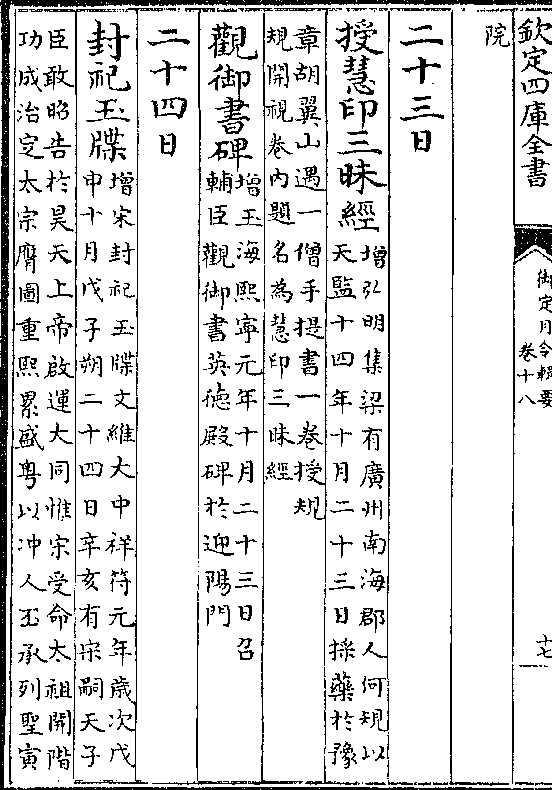 欽定四庫全書
御定月令輯要
卷十八
十七
院
二十三日
授慧印三昧經增弘明集梁有廣州南海郡人何規以
天監十四年十月二十三日採藥於豫
章胡翼山遇一僧手提書一卷授規
規開視卷內題名為慧印三昧經
觀御書碑增玉海熙寧元年十月二十三日召
輔臣觀御書英德殿碑於迎陽門
二十四日
封祀玉牒增宋封祀玉牒文維大中祥符元年歲次戊
申十月戊子朔二十四日辛亥有宋嗣天子
臣敢昭告於昊天上帝啟運大同惟宋受命太祖開階
功成治定太宗膺圖重熙累盛粤以冲人丕承列聖寅